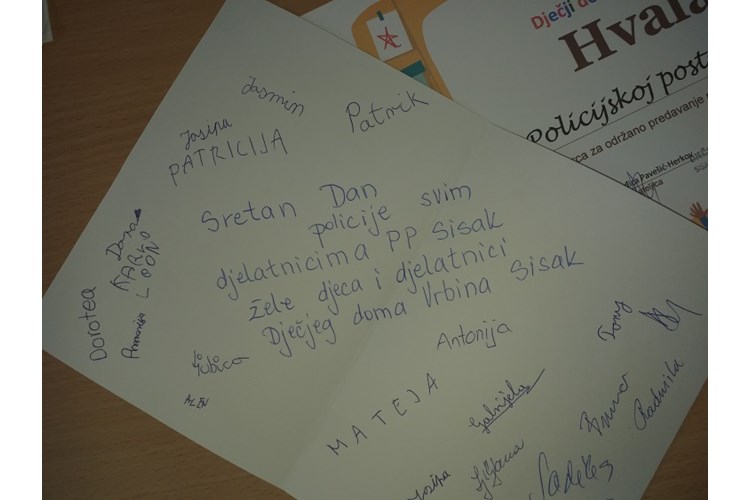 Dječji
Hvala
Policijskoj post
za održano predavanje
Pavešić-Herkov
Jasmin
Josipa
Patrik
PATRICIJA
Sretan Dan
policije svim
djelatnicima PP Sisak
žele djeca i djelatnici
Dječjeg doma Vrbina Sisak
Dorotea
Dona
KARLO
LEON
Ljubica
ALEN
Antonija
MATEJA
Gabrijela
Tony
Josipa
Ljiljana
Radmila